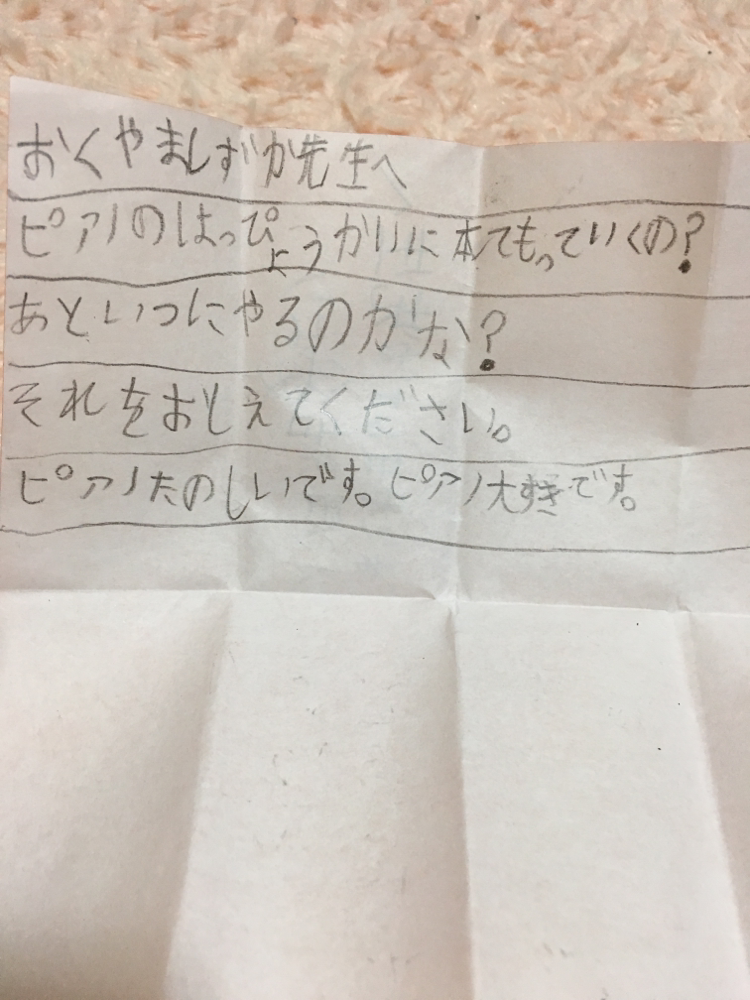 おくやましずか先生へ
ピアノのはっぴょうかいに本てもっていくの?
あといつにやるのかな?
それをおしえてください。
ピアノたのしいです。ピアノ大すきです。